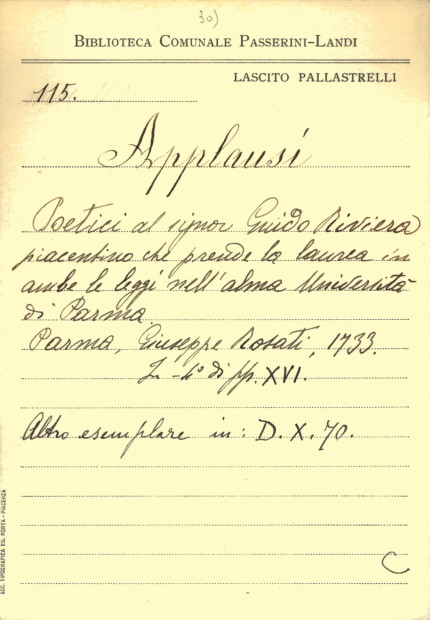 30)
BIBLIOTECA COMUNALE PASSERINI-LANDI
LASCITO PALLASTRELLI
115.
Applausi
Poetici al signor Guido Riviera
piacentino che prende la laurea in
ambe le leggi nell'alma Università
di Parma.
Parma, Giuseppe Rosati, 1733.
in-4° di pp. XVI.
Altro esemplare in: D. X. 70.
C
SOC. TIPOGRAFICA ED. PORTA - PIACENZA